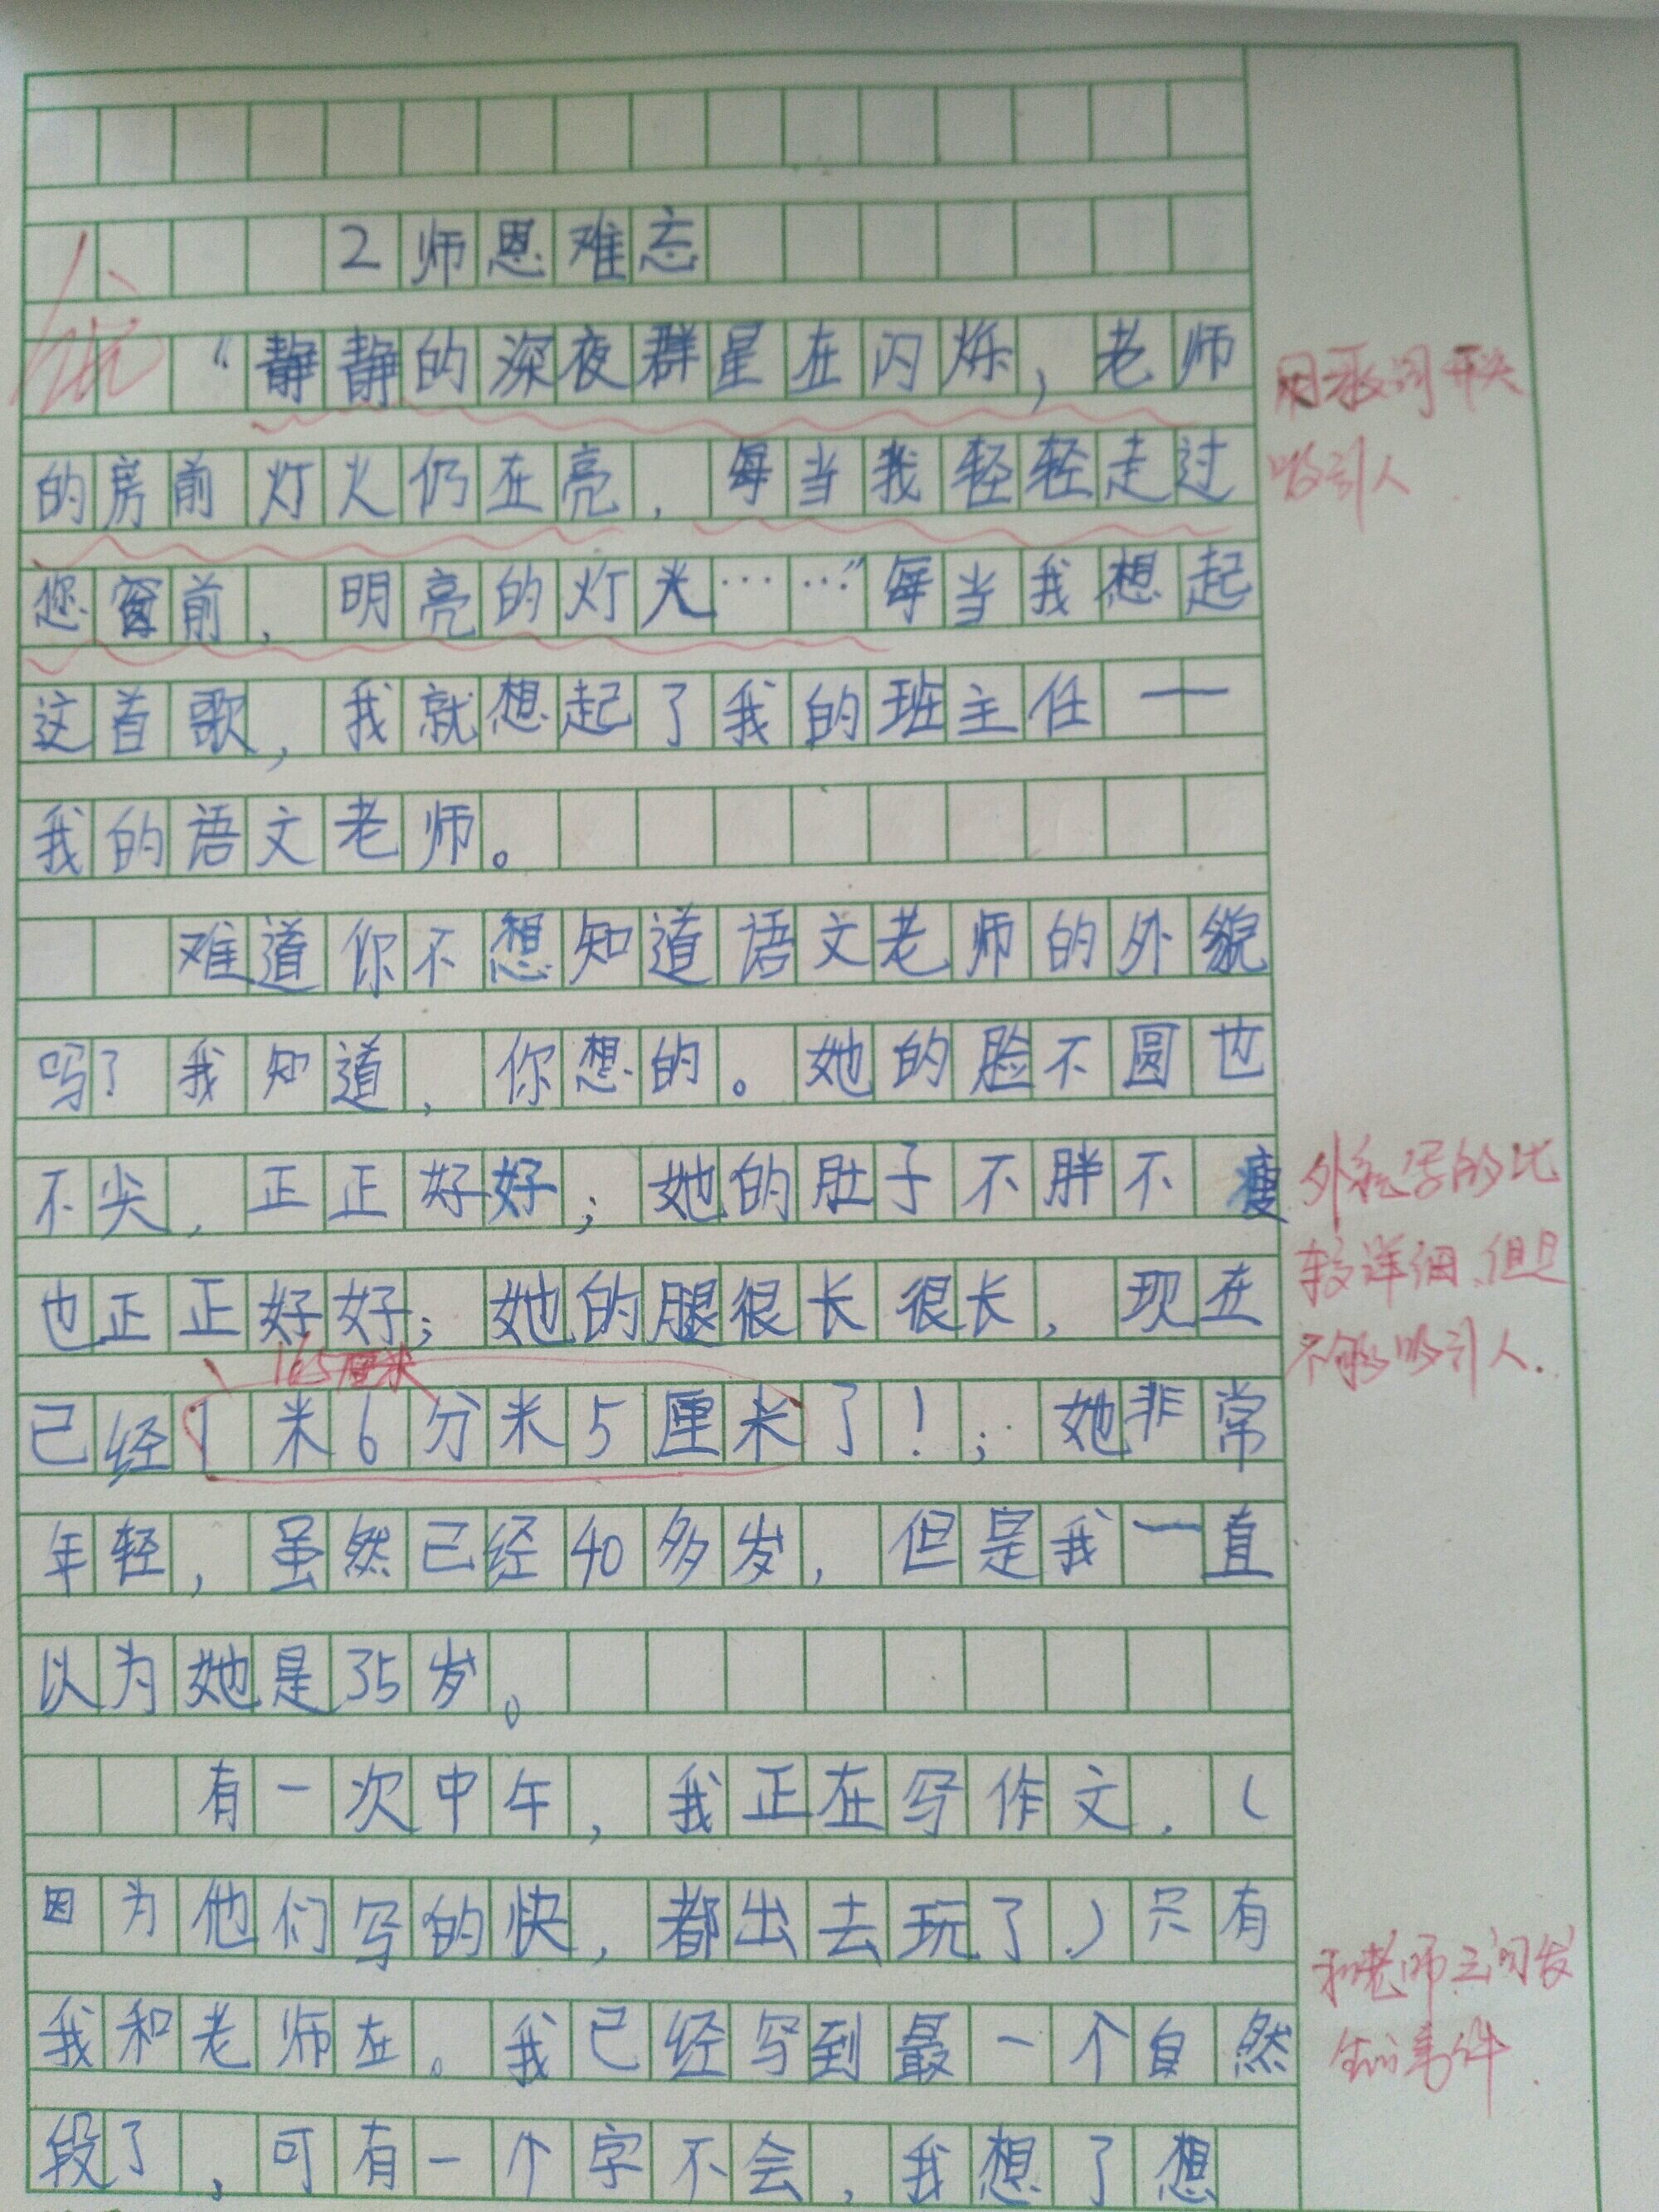 2 师恩难忘
优
“静静的深夜群星在闪烁,老师
用歌词开头
的房前灯火仍在亮,每当我轻轻走过
吸引人
您窗前,明亮的灯光……”每当我想起
这首歌,我就想起了我的班主任——
我的语文老师。
难道你不想知道语文老师的外貌
吗?我知道,你想的。她的脸不圆也
不尖,正正好好;她的肚子不胖不瘦
外貌写的比
也正正好好;她的腿很长很长,现在
较详细,但是
165厘米
不够吸引人.
已经1米6分米5厘米了!;她非常
年轻,虽然已经40多岁,但是我一直
以为她是35岁。
有一次中午,我正在写作文,(
因为他们写的快,都出去玩了,)只有
和老师之间发
我和老师在。我已经写到最一个自然
生的事件.
段了,可有一个字不会,我想了想